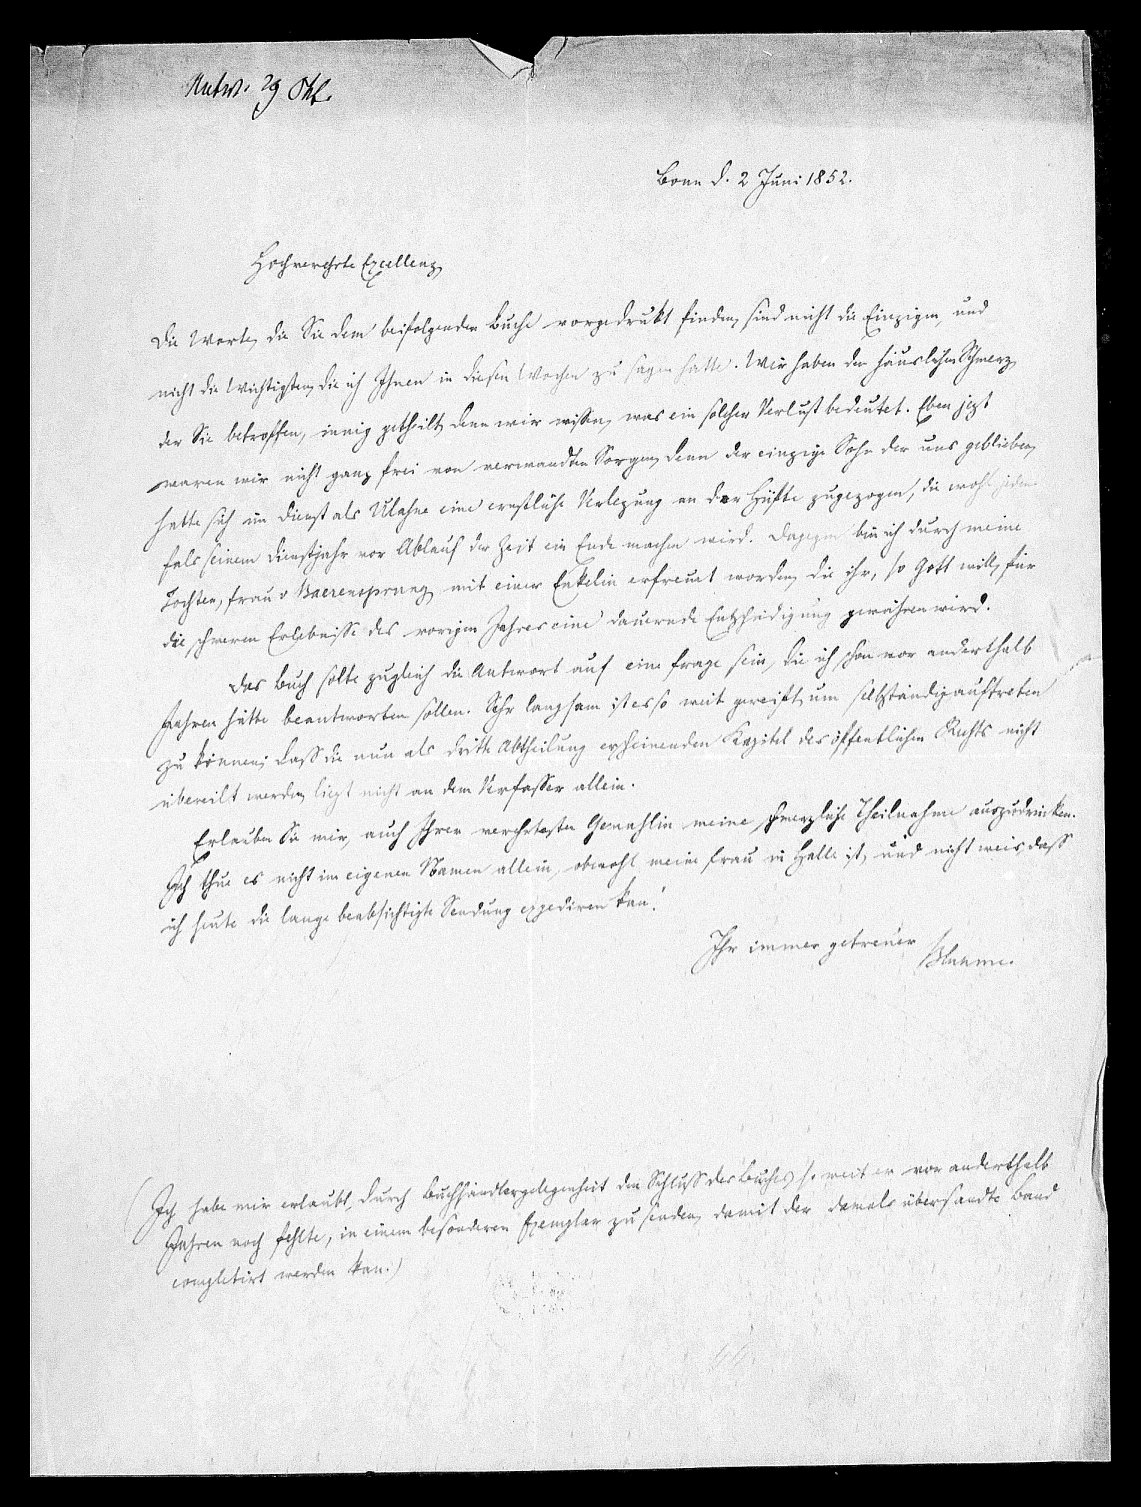 Antw. 29 Okt.
Bonn d. 2 Juni 1852.
Hochverehrte Excellenz
Die Worte, die Sie dem beifolgenden Buche vorgedrukt finden, sind nicht die Einzigen, und
nicht die Wichtigsten, die ich Ihnen in diesen Wochen zu sagen hatte. Wir haben den häuslichen Schmerz,
der Sie betroffen, innig getheilt, denn wir wissen, was ein solcher Verlust bedeutet. Eben jezt
waren wir nicht ganz frei von verwandten Sorgen, denn der einzige Sohn der uns geblieben,
hatte sich im Dienst als Ulahne eine ernstliche Verlezung an der Hüfte zugezogen, die wohl jeden-
fals seinem Dienstjahr vor Ablauf der Zeit ein Ende machen wird. Dagegen bin ich durch meine
Tochter, Frau v Baerensprung mit einer Enkelin erfreuet worden, die ihr, so Gott will, für
die schweren Erlebnisse des vorigen Jahres eine dauernde Entschädigung gewähren wird.
Das Buch solte zugleich die Antwort auf eine Frage sein, die ich schon vor anderthalb
Jahren hätte beantworten sollen. Sehr langsam ist es so weit gereift, um selbständig auftreten
zu können; dass die nun als dritte Abtheilung erscheinenden Kapitel des öffentlichen Rechts nicht
übereilt werden, liegt nicht an dem Verfasser allein.
Erlauben Sie mir, auch Ihrer verehrtesten Gemahlin meine schmerzliche Theilnahme auszudrücken.
Ich thue es nicht im eigenen Namen allein, obwohl meine Frau in Halle ist, und nicht weis, dass
ich heute die lange beabsichtigte Sendung expediren kan!
Ihr immer getreuer
Bluhme.
(Ich habe mir erlaubt, durch Buchhändlergelegenheit den Schluss des Buches, so weit er vor anderthalb
Jahren noch fehlte, in einem besonderen Exemplar zu senden, damit der damals übersandte Band
completirt werden kan.)